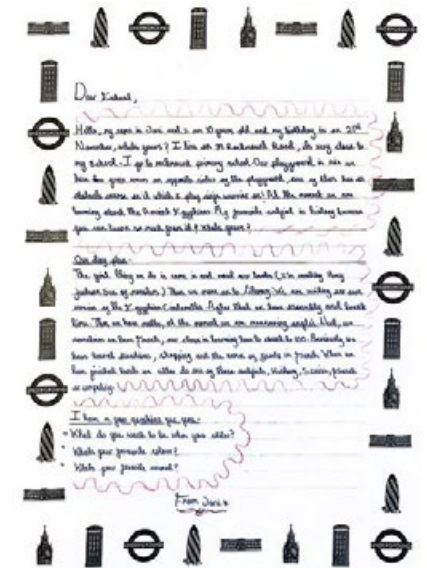 Dear
Hello, my name is Jani and I am 10 years old and my birthday is on 20th
November, whats yours? I live on Road, its very close to
my school. I go to primary school. Our playground is
two green areas on opposite sides of the playground, one of them has an
obstacle course on it which I play ninja warrior on! At the moment we are
learning about the Ancient Egyptians. My favourite subject is history because
you can learn so much from it! Whats yours?
Our day plan-
The first thing we do is come in and read our books (I'm reading
) Then we move on to literacy. We are writing our own
version of the Egyptian Cinderella. After that we have assembly and break
time. Then we have maths, at the moment we are measuring angles. Next, we
sometimes we have French, our class is learning how to count to 100. Previously we
have learnt and the names of in French. When we
have finished lunch we either do one of these subjects, History, Science, French
or computing.
I have a few questions for you-
What do you want to be when you older?
Whats your favourite colour?
Whats your favourite animal?
From Jani